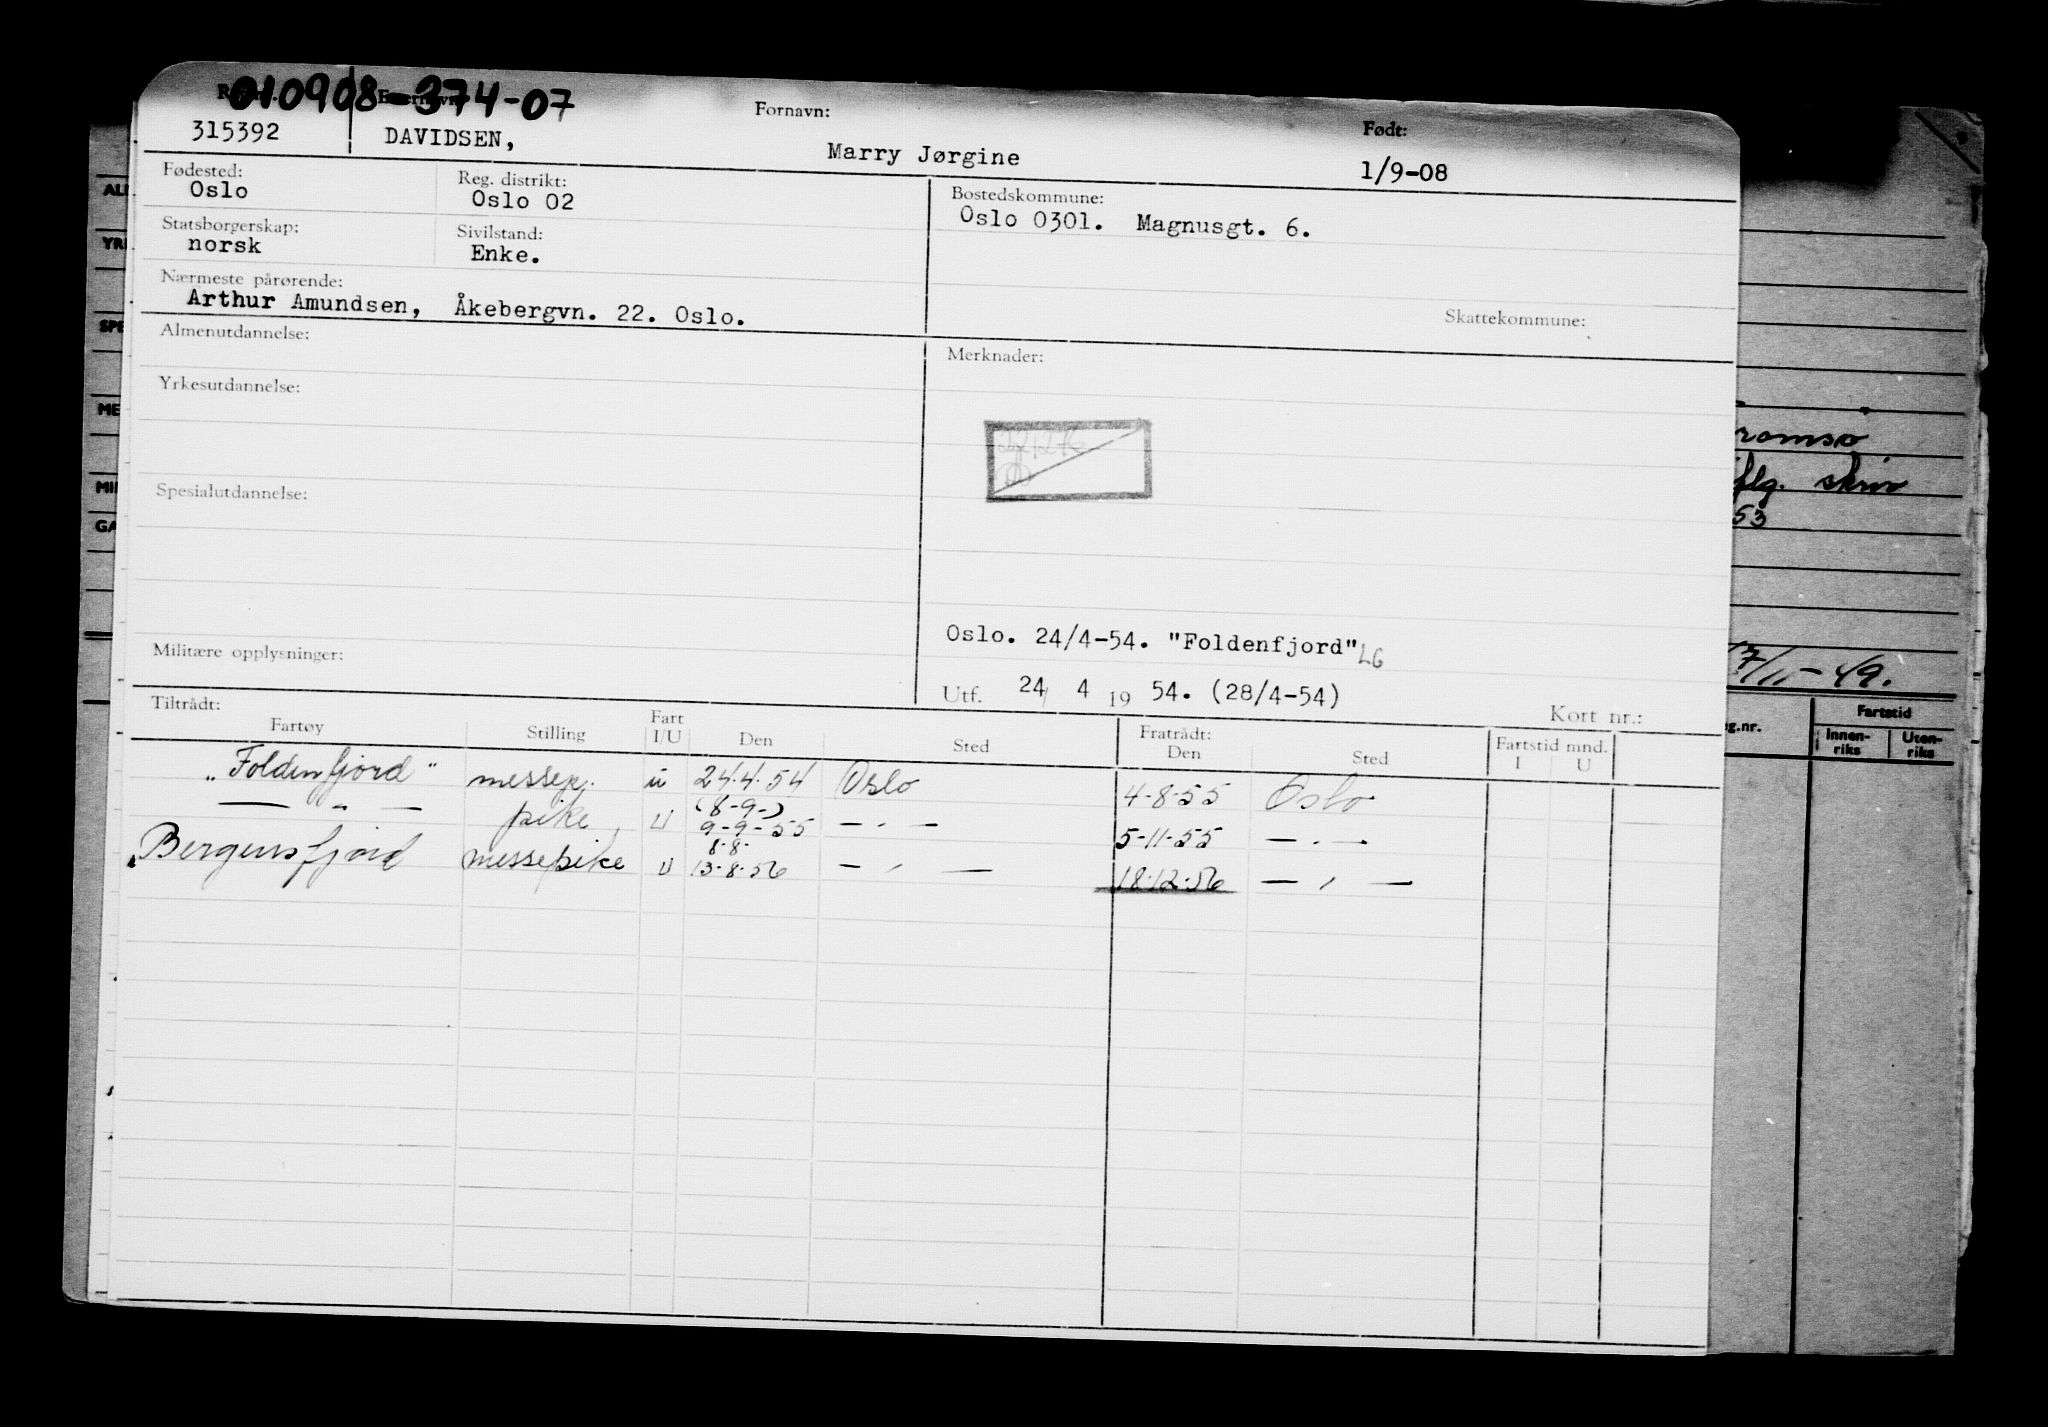 010908-374-07
Fornavn: Født:
315392 DAVIDSEN, Marry Jørgine 1/9-08
Fødested: Reg. distrikt: Bostedskommune:
Oslo Oslo 02 Oslo 0301. Magnusgt. 6.
Statsborgerskap: Sivilstand:
norsk Enke.
Nærmeste pårørende:
Arthur Amundsen, Åkebergvn. 22. Oslo.
Skattekommune:
Almenutdannelse: Merknader:
Yrkesutdannelse:
Spesialutdannelse:
Oslo. 24/4-54. "Foldenfjord" LG
Militære opplysninger:
Utf. 24/ 4 19 54. (28/4-54) Kort nr.:
Tiltrådt: Fratrådt:
Fartøy Stilling Fart I/U Den Sted Den Sted Fartstid mnd. I U
"Foldenfjord" messepj. u 24.4.54 Oslo 4-8-55 Oslo
— " — pike U (8-9-) 9-9-55 — " — 5-11-55 — " —
Bergensfjord messepike U 8-8- 13-8-56 — " — 18-12-56 — " —
romsø
iflg. skriv
53
17/11-49.
g.nr. Fartstid
Innen-riks Uten-riks